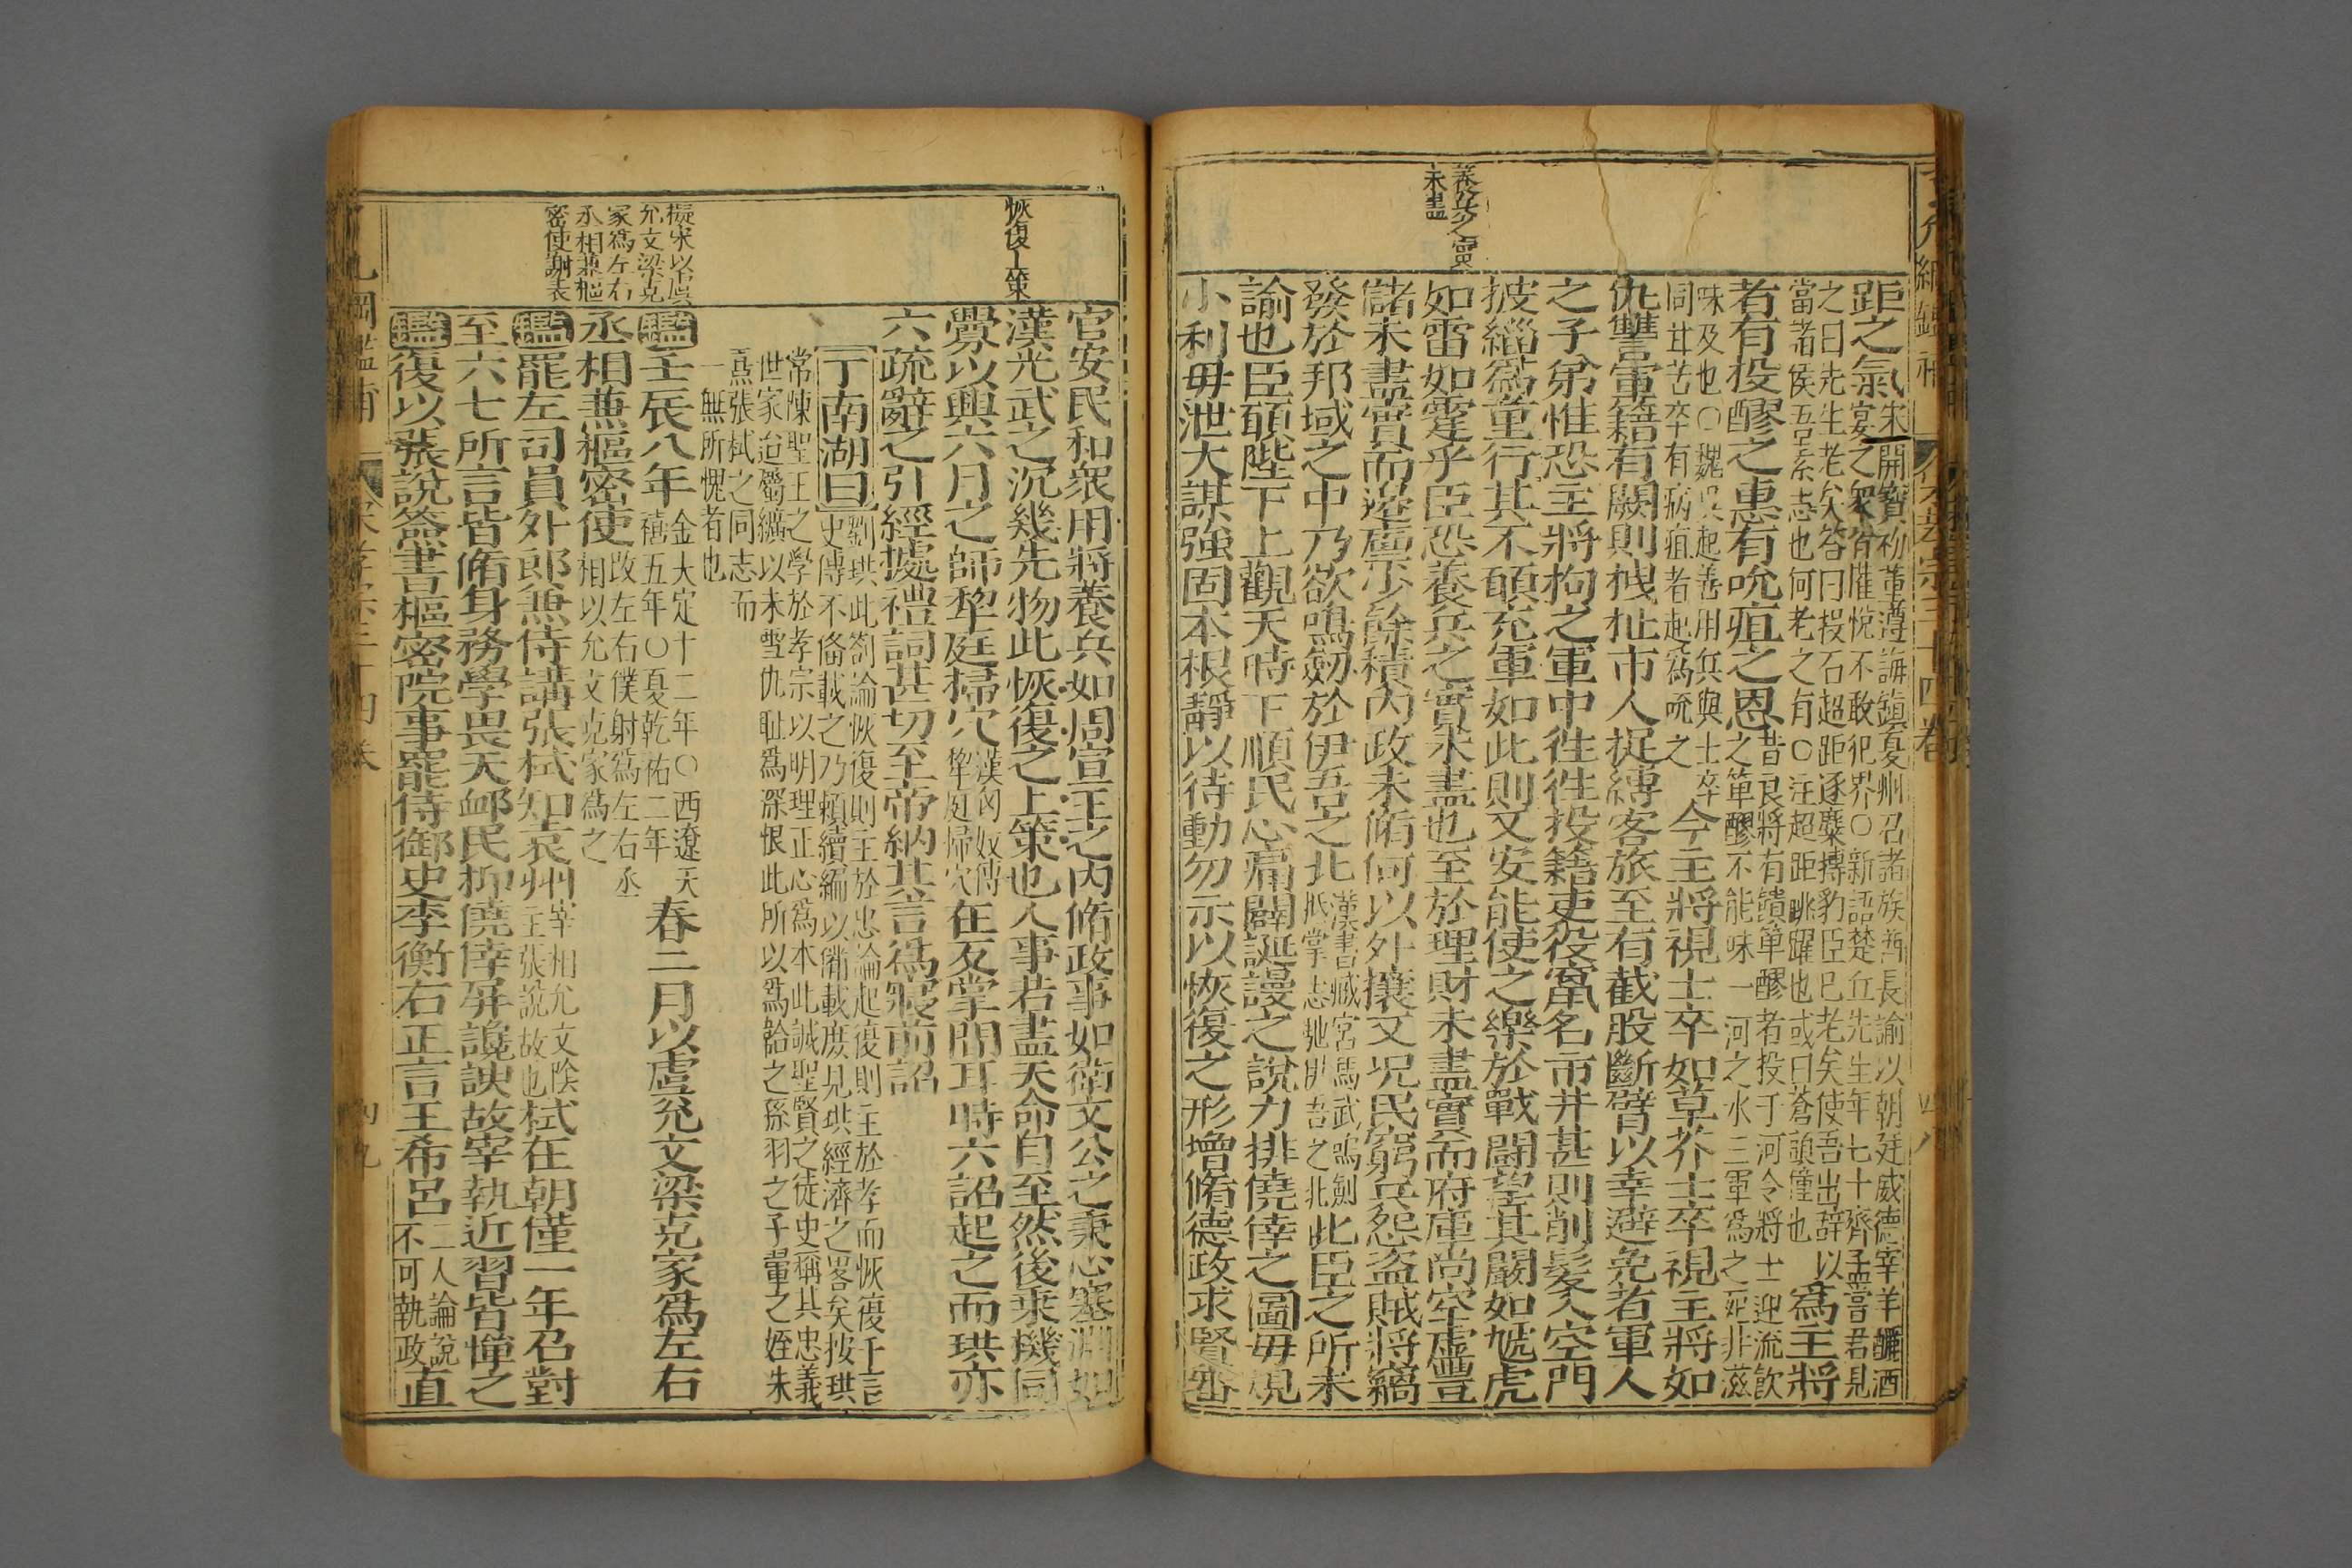 養兵之實
未盡
距之氣
宋開寶初董遵誨鎮夏州召諸族酋長諭以朝廷威德宰羊釃酒
宴之眾皆懽悅不敢犯界〇新語楚丘先生年七十齊孟嘗君見
之曰先生老矣答曰投石超距逐麋搏豹臣已老矣使吾出辭以
當者侯吾素志也何老之有〇注超距跳躍也或曰蒼頭僮也
為主將
者有投醪之惠有吮疽之恩
昔良將有饋簞醪者投于河令將士迎流飲
之簞醪不能味一河之水三軍為之死非滋
味及也〇魏吳起善用兵與士卒
同甘苦卒有病疽者起為吮之
今主將視士卒如草芥士卒視主將如
仇讐軍籍有闕則拽扯市人捉縛客旅至有截股斷臂以幸避免者軍人
之子弟惟恐主將拘之軍中徃徃投籍吏役竄名市井甚則削髮入空門
披緇為童行其不頋充軍如此則又安能使之樂於戰鬪望其闞如虓虎
如雷如霆乎臣恐養兵之實未盡也至於理財未盡實而府庫尚空虛豐
儲未盡實而邊廩少餘積內政未脩何以外攘又况民窮兵怨盜賊將竊
發於邦域之中乃欲鳴劒於伊吾之北
漢書臧宮馬武鳴劍
抵掌志馳伊吾之北
此臣之所未
諭也臣頋陛下上觀天時下順民心痛闢誕謾之說力排僥倖之圖毋規
小利毋泄大謀強固本根靜以待動勿示以恢復之形增脩德政求賢審
恢復上策
官安民和衆用將養兵如周宣王之內脩政事如衛文公之秉心塞淵如
漢光武之沉幾先物此恢復之上策也人事若盡天命自至然後乘機同
釁以興六月之師犂庭掃穴
漢匈奴傳
犂庭掃穴
在反掌間耳時六詔起之而珙亦
六疏辭之引經據禮詞甚切至帝納其言為寢前詔
丁南湖曰
劉珙此劄論恢復則主於忠論起復則主於孝而恢復千言
史傳不俻載之乃賴續編以俻載庶見珙經濟之畧矣按珙
常陳聖王之學於孝宗以明理正心為本此誠聖賢之徒史稱其忠義
世家迨屬纊以未雪仇耻為深恨此所以為韐之孫羽之子翬之姪朱
熹張栻之同志而
一無所愧者也
擬宋以虞
允文梁克
家為左右
丞相兼樞
密使謝表
鑑壬辰八年
金大定十二年〇西遼天
禧五年〇夏乾祐二年
春二月以虞允文梁克家為左右
丞相兼樞密使
改左右僕射為左右丞
相以允文克家為之
鑑罷左司員外郎兼侍講張栻知袁州
宰相允文陰
主張說故也
栻在朝僅一年召對
至六七所言皆脩身務學畏天䘏民抑僥倖屏讒諛故宰執近習皆憚之
鑑復以張說簽書樞密院事罷侍御史李衡右正言王希呂
二人論說
不可執政
直